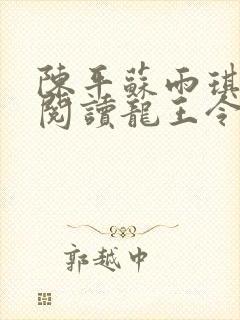 陳平蘇雨琪
閱讀龍王令
郭越中